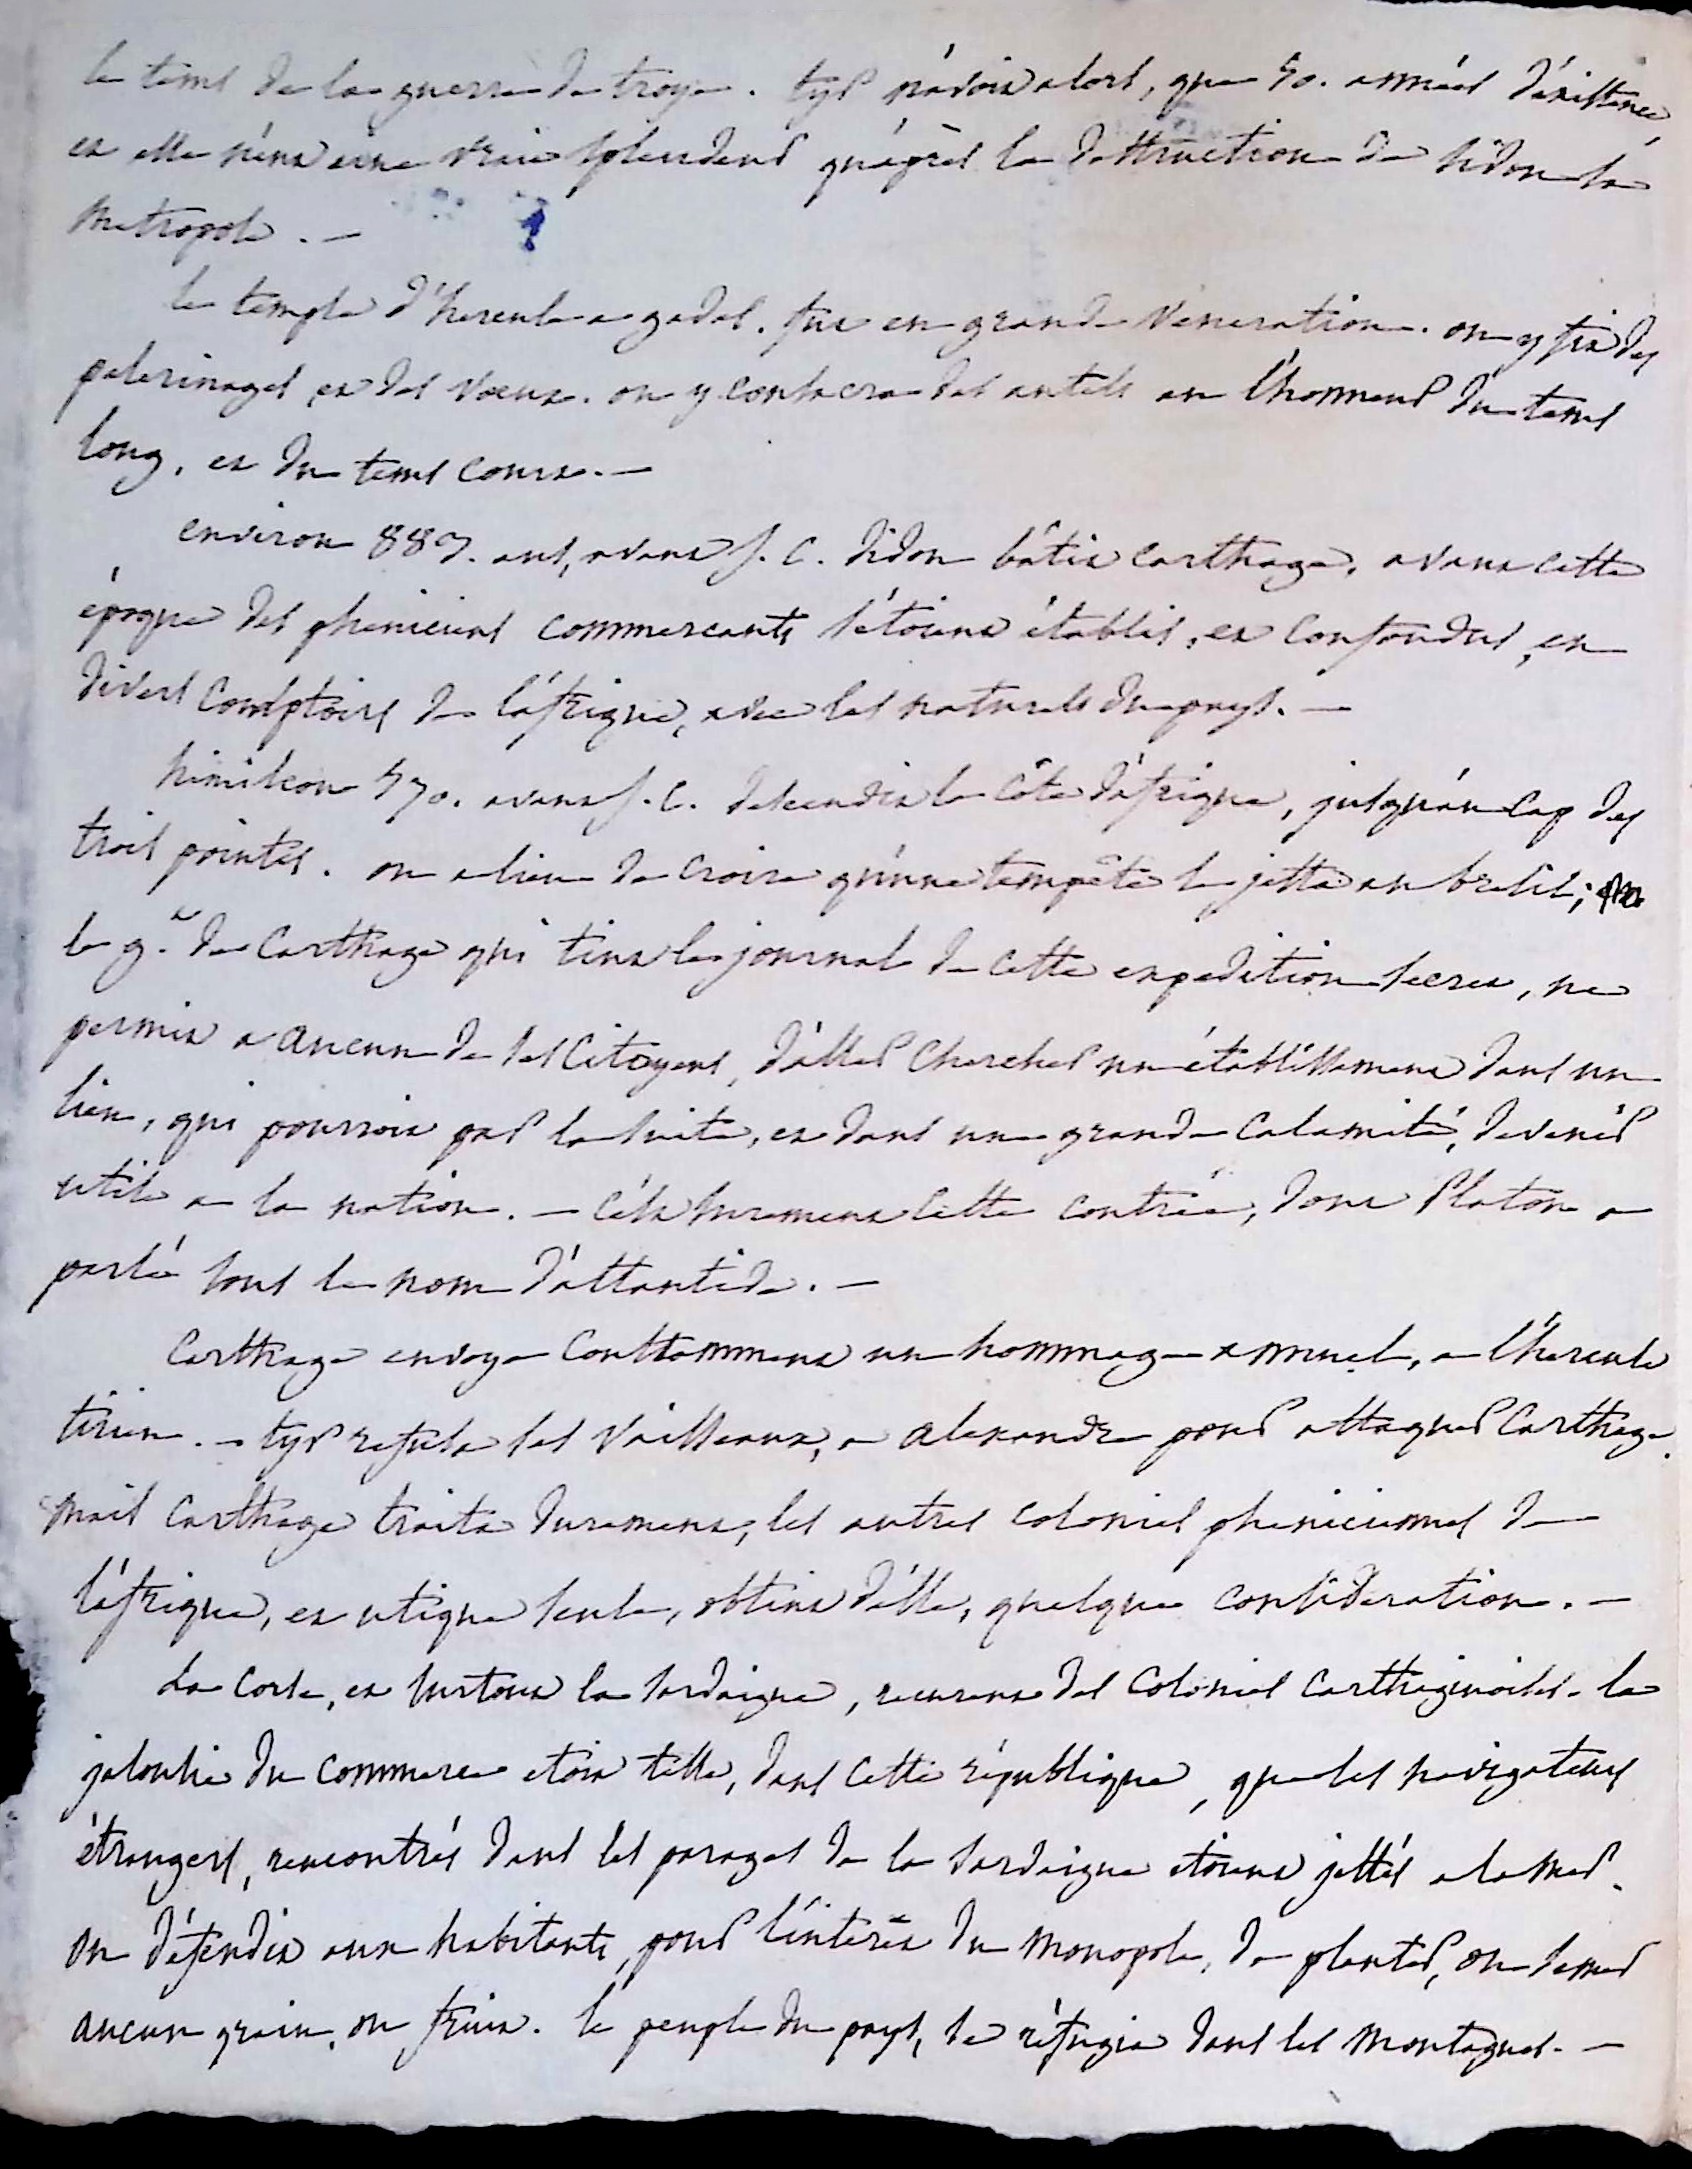 le tems de la guerre de troye. tyr n'avoit alors, que 50. années d'existence,
et elle n'eut une vraie splendeur qu'après la destruction de sidon sa
metropole. —
le temple d'hercule a gades. fut en grande veneration. on y fit des
pelerinages, et des vœux. on y consacra des autels en l'honneur du tems
long, et du tems court. —
environ 887. ans, avant J. C. didon bâtit carthage. avant cette
époque des pheniciens commercants s'étoient établis, et confondus, en
divers comptoirs de l'afrique, avec les naturels du pays. —
himilcon 570. avant J. C. descendit la côte d'afrique, jusqu'au cap des
trois pointes. on a lieu de croire qu'une tempête le jetta au bresil;
le g.t de Carthage qui tint le journal de cette expedition secret, ne
permit a aucun de ses Citoyens, d'aller chercher un établissement dans un
lieu, qui pourroit par la suite, et dans une grande calamité, devenir
utile a la nation. — c'est surement cette contrée, dont Platon a
parlé sous le nom d'attantide. —
Carthage envoya constamment un hommage annuel, a l'hercule
tirien. — tyr refusa ses vaisseaux, a alexandre pour attaquer Carthage.
mais Carthage traita durement, les autres colonies pheniciennes de
l'afrique, et utique seule, obtint d'elle, quelque consideration. —
La Corse, et surtout la sardaigne, recurent des Colonies Carthaginoises. la
jalousie du commerce etoit telle, dans cette république, que les navigateurs
étrangers, rencontrés dans les parages de la sardaigne etoient jettés a la mer.
on défendit aux habitants, pour l'intérêt du monopole, de planter, ou semer
aucun grain, ou fruit. le peuple du pays, se réfugia dans les montagnes. —